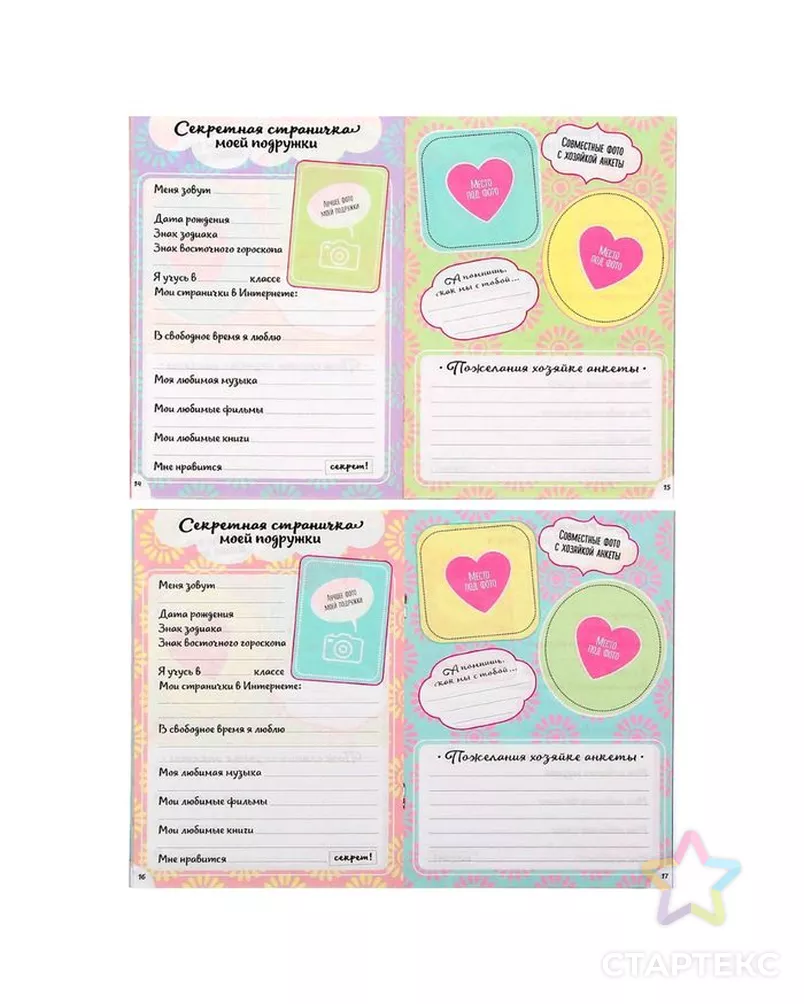 Секретная страничка
моей подружки
Меня зовут
Лучшее фото
моей подружки
Дата рождения
Знак зодиака
Знак восточного гороскопа
Я учусь в классе
Мои странички в Интернете:
В свободное время я люблю
Моя любимая музыка
Мои любимые фильмы
Мои любимые книги
Мне нравится секрет!
14
Совместные фото
с хозяйкой анкеты
Место
под фото
Место
под фото
А помнишь,
как мы с тобой...
• Пожелания хозяйке анкеты •
15
Секретная страничка
моей подружки
Меня зовут
Лучшее фото
моей подружки
Дата рождения
Знак зодиака
Знак восточного гороскопа
Я учусь в классе
Мои странички в Интернете:
В свободное время я люблю
Моя любимая музыка
Мои любимые фильмы
Мои любимые книги
Мне нравится секрет!
16
Совместные фото
с хозяйкой анкеты
Место
под фото
Место
под фото
А помнишь,
как мы с тобой...
• Пожелания хозяйке анкеты •
17
СТАРТЕКС